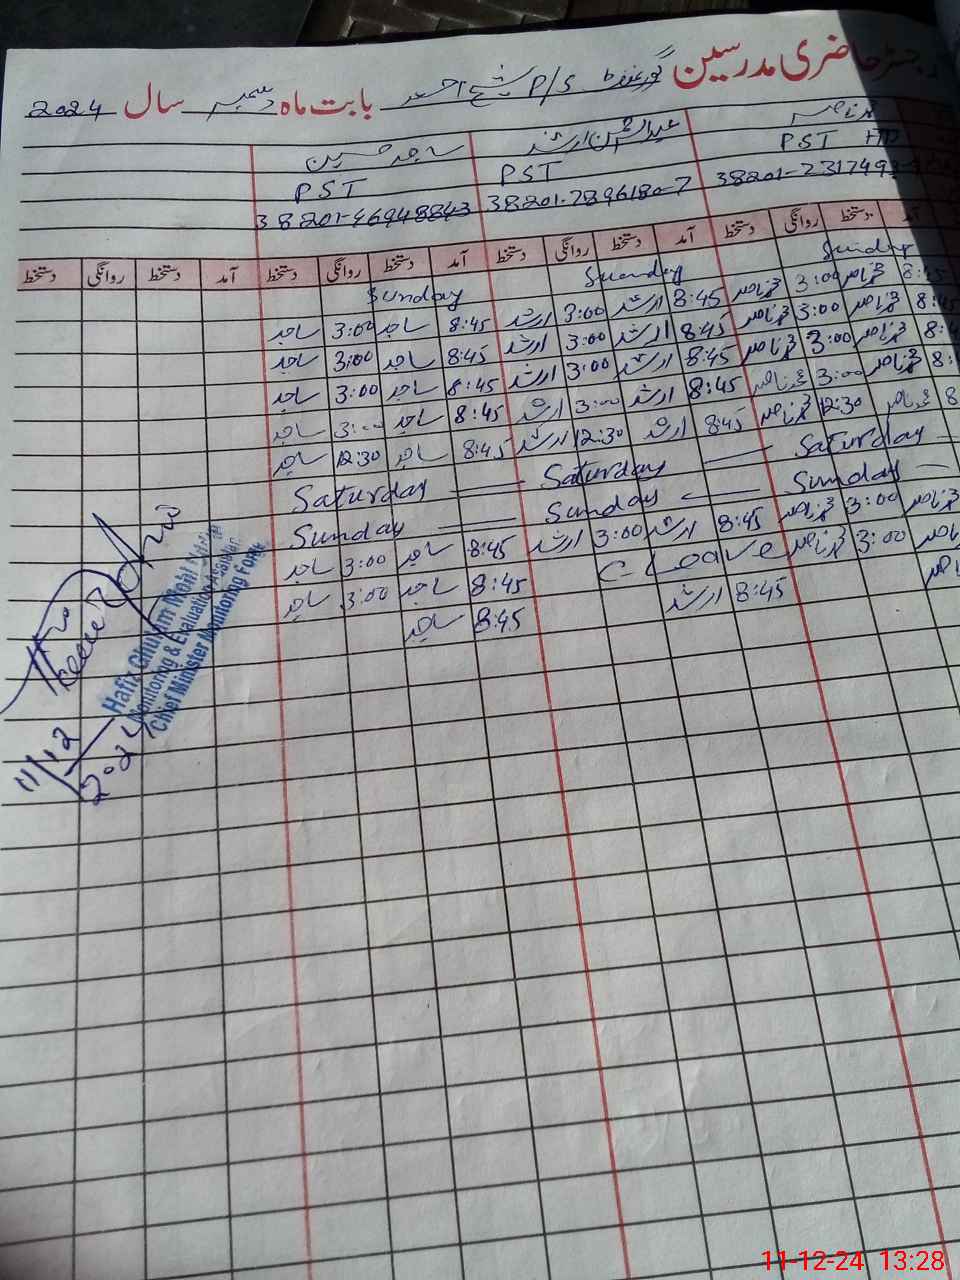 رجسٹر حاضری مدرسین گورنمنٹ P/S شیخ احمد بابت ماہ دسمبر سال 2024
محمد ناصر عبدالرحمن ارشد ساجد حسین
PST PST PST
38201-7896180-7 38201-46948843
آمد دستخط روانگی دستخط آمد دستخط روانگی دستخط آمد دستخط روانگی دستخط آمد دستخط روانگی دستخط
Sunday Sunday Sunday
8:45 محمد ناصر 3:00 محمد ناصر 8:45 ارشد 3:00 ارشد 8:45 ساجد 3:00 ساجد
8:45 محمد ناصر 3:00 محمد ناصر 8:45 ارشد 3:00 ارشد 8:45 ساجد 3:00 ساجد
محمد ناصر 3:00 محمد ناصر 8:45 ارشد 3:00 ارشد 8:45 ساجد 3:00 ساجد
محمد ناصر 3:00 محمد ناصر 8:45 ارشد 3:00 ارشد 8:45 ساجد 3:00 ساجد
محمد ناصر 12:30 محمد ناصر 8:45 ارشد 12:30 ارشد 8:45 ساجد 12:30 ساجد
Saturday — Saturday — Saturday —
Sunday — Sunday — Sunday —
محمد ناصر 3:00 محمد ناصر 8:45 ارشد 3:00 ارشد 8:45 ساجد 3:00 ساجد
3:00 محمد ناصر C-Leave 8:45 ساجد 3:00 ساجد
8:45 ارشد 8:45 ساجد
Hafiz Ghulam Mohi
Monitoring & Evaluation Assistant
Chief Minister Monitoring Force
11/12
2024
11-12-24 13:28